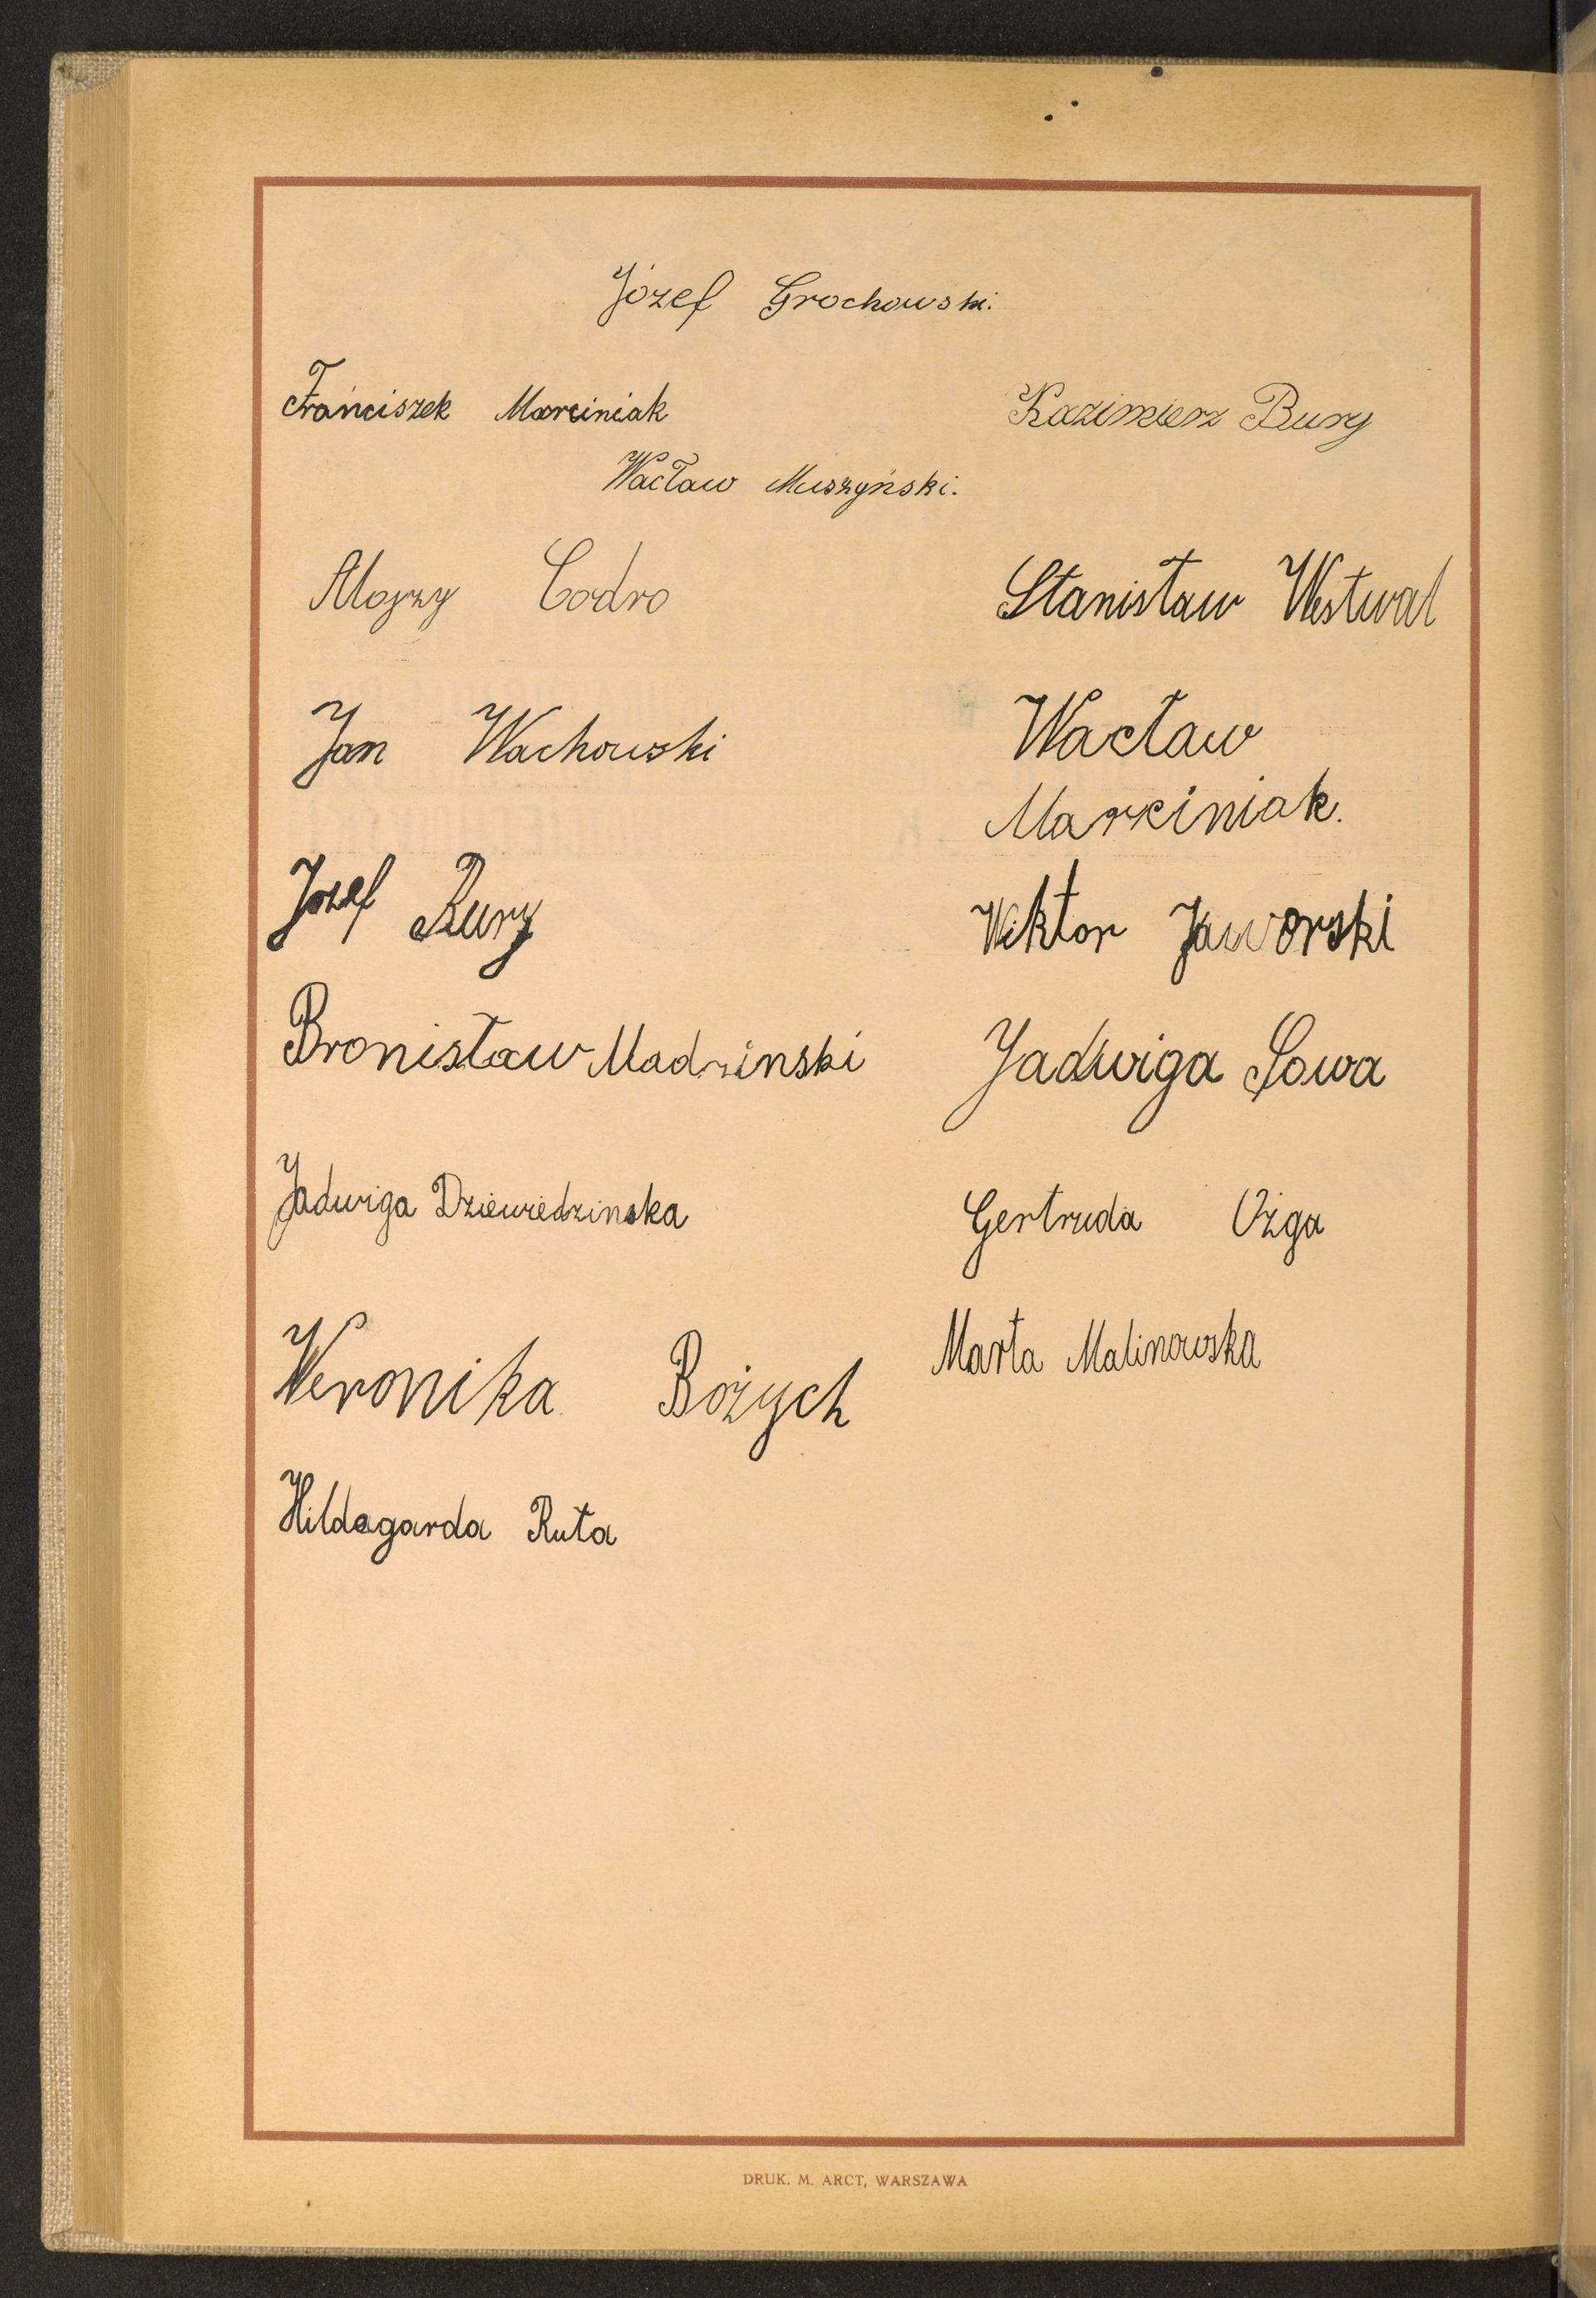 Józef Grochowski.
Franciszek Marciniak Kazimierz Bury
Wacław Muszyński.
Alojzy Codro Stanisław Westwal
Jan Wachowski Wacław
Marciniak.
Józef Bury Wiktor Jaworski
Bronisław Madziński Jadwiga Sowa
Jadwiga Dziewiedzinska Gertruda Ożga
Weronika Bożych Marta Malinowska
Hildegarda Ruta
DRUK. M. ARCT, WARSZAWA